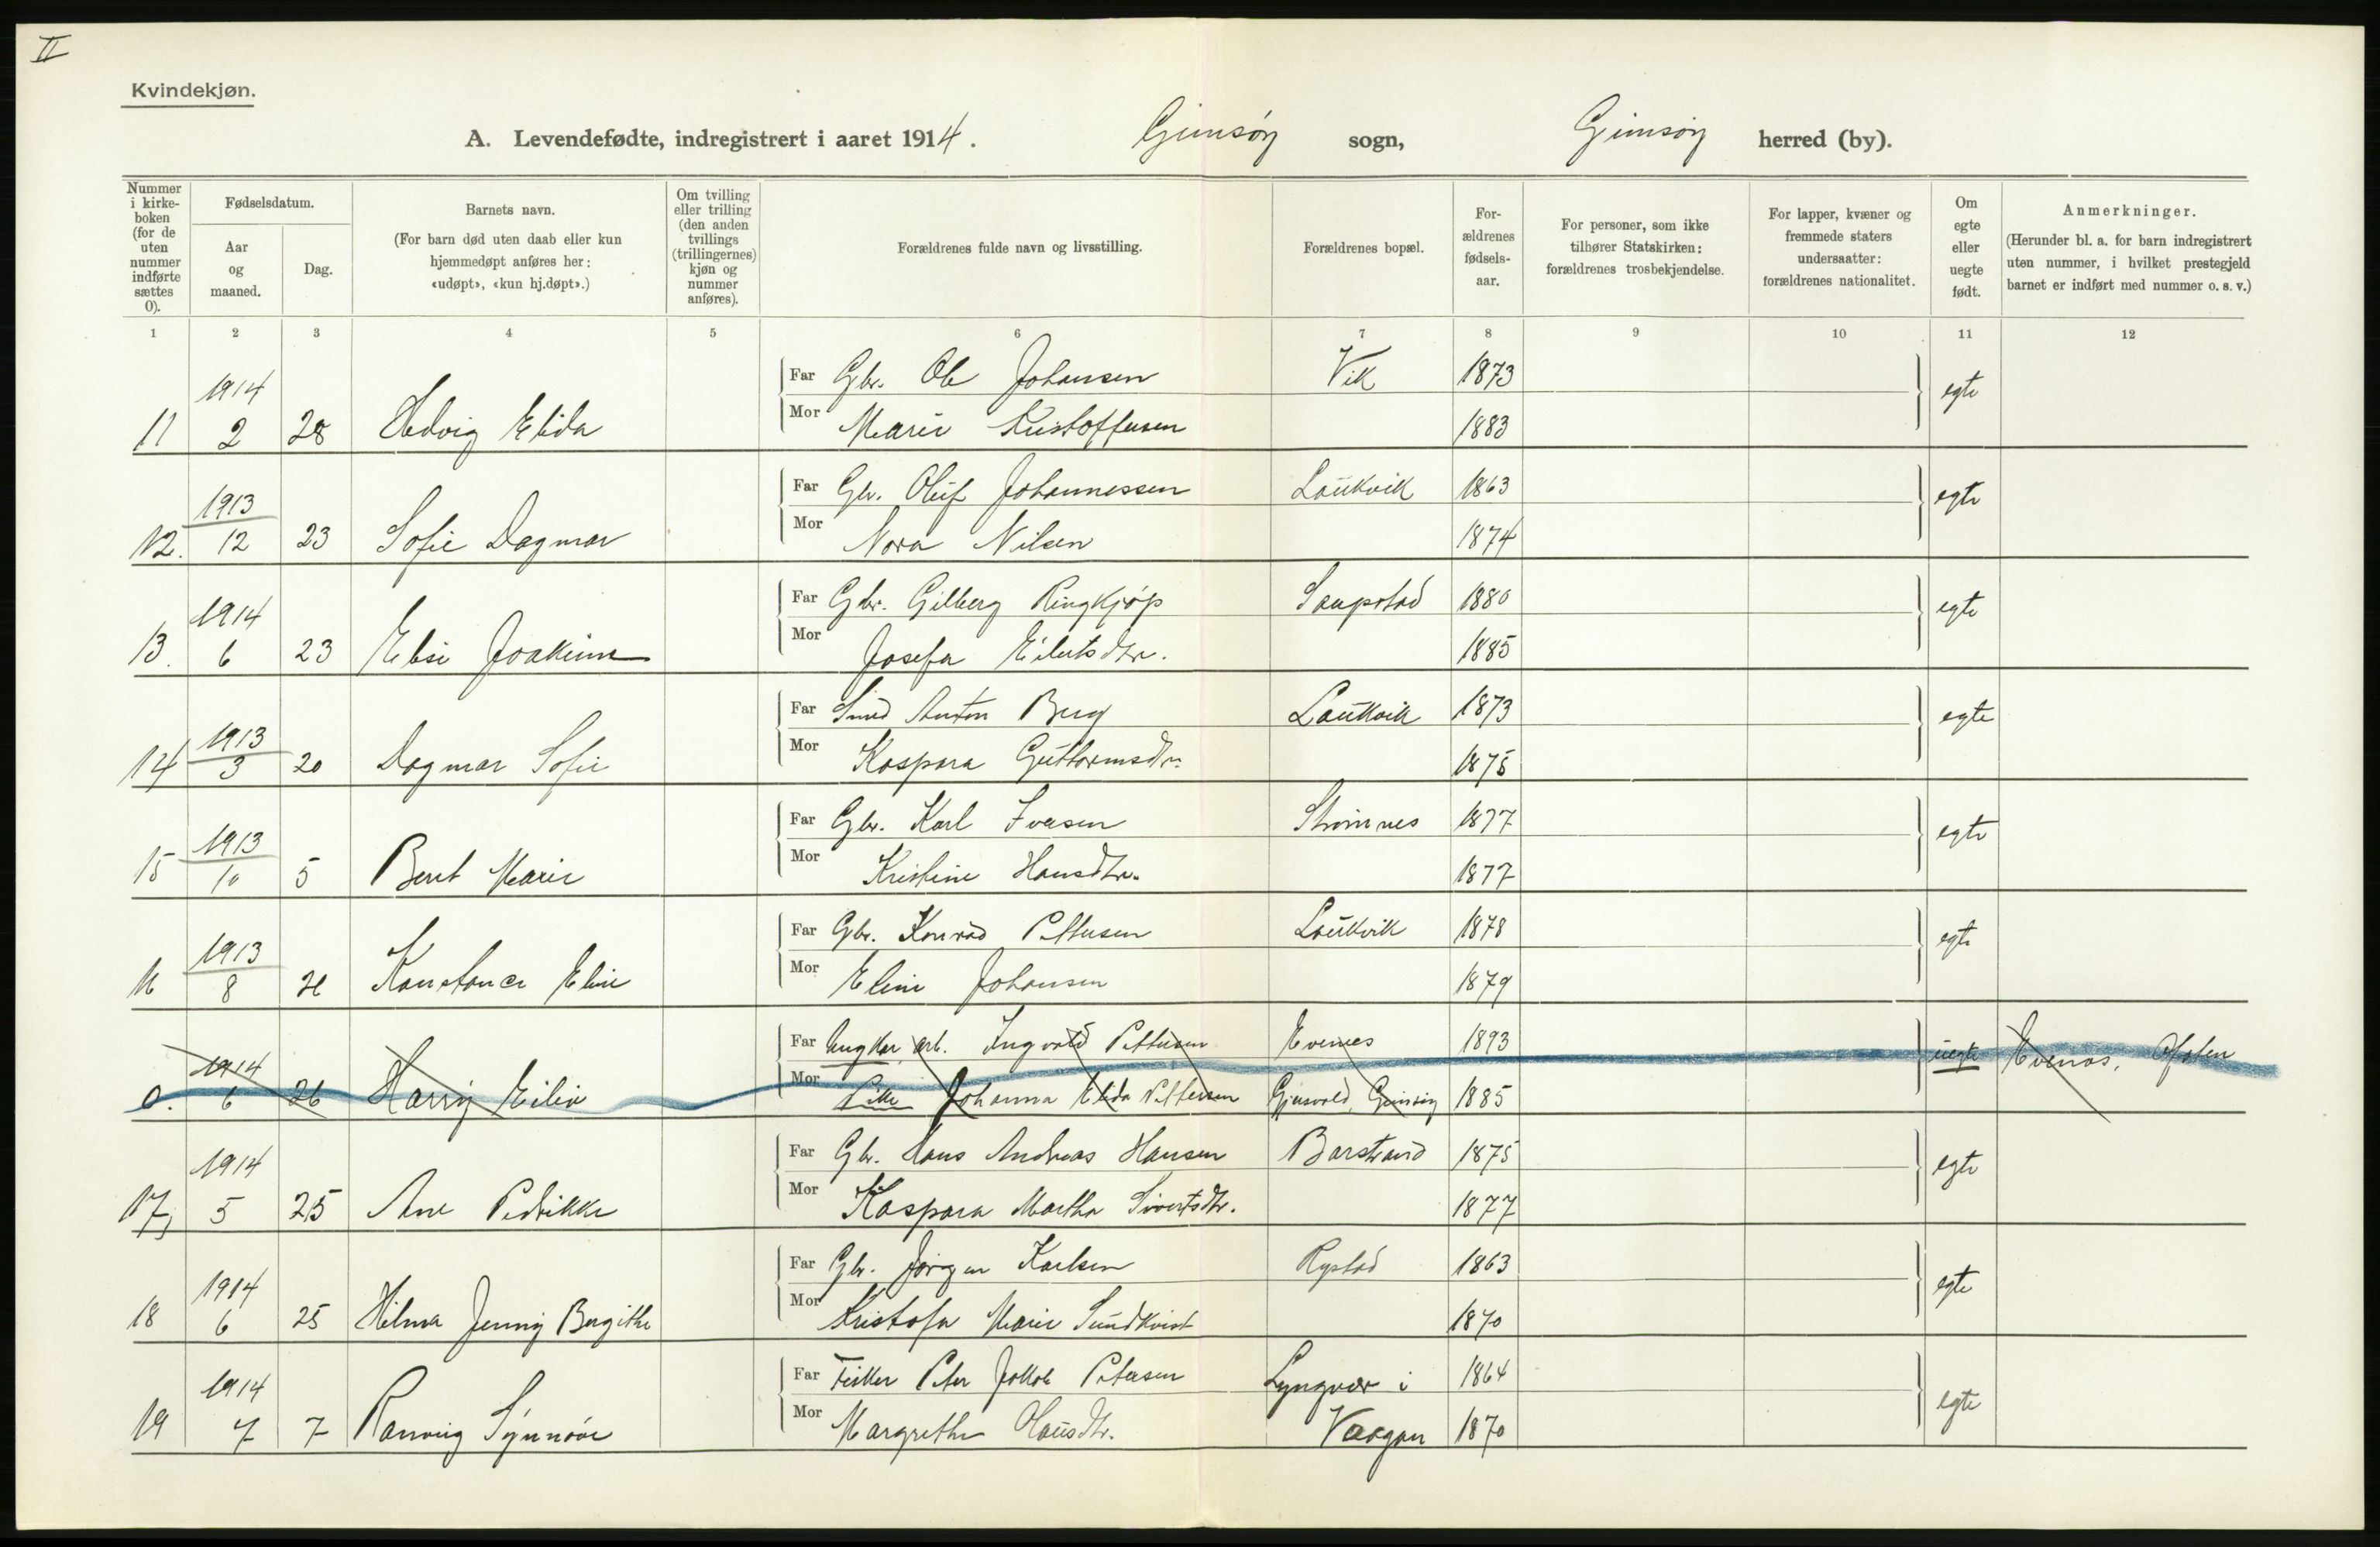 II
Kvindekjøn.
A. Levendefødte, indregistrert i aaret 1914. Gimsøy sogn, Gimsøy herred (by).
Nummer i kirke-boken (for de uten nummer indførte sættes 0).
Fødselsdatum.
Aar og maaned.
Dag.
Barnets navn.
(For barn død uten daab eller kun hjemmedøpt anføres her: «udøpt», «kun hj.døpt».)
Om tvilling eller trilling (den anden tvillings (trillingernes) kjøn og nummer anføres).
Forældrenes fulde navn og livsstilling.
Forældrenes bopæl.
For-ældrenes fødsels-aar.
For personer, som ikke tilhører Statskirken: forældrenes trosbekjendelse.
For lapper, kvæner og fremmede staters undersaatter: forældrenes nationalitet.
Om egte eller uegte født.
Anmerkninger.
(Herunder bl. a. for barn indregistrert uten nummer, i hvilket prestegjeld barnet er indført med nummer o. s. v.)
1 2 3 4 5 6 7 8 9 10 11 12
11 1914 2 28 Hedvig Elida Far Gbr. Ole Johansen Vik 1873 egte
Mor Marie Kristoffersen 1883
12. 1913 12 23 Sofie Dagmar Far Gbr. Oluf Johannessen Laukvik 1863 egte
Mor Nora Nilsen 1874
13. 1914 6 23 Elise Joakime Far Gbr. Gilberg Ringkjøp Saupstad 1880 egte
Mor Josefa Eilertsdtr. 1885
14 1913 3 20 Dagmar Sofie Far Smed Anton Berg Laukvik 1873 egte
Mor Kaspara Guttormsdtr. 1875
15 1913 10 5 Berit Marie Far Gbr. Karl Iversen Strømnes 1877 egte
Mor Kristine Hansdtr. 1877
16 1913 8 Konstance Eline Far Gbr. Konrad Pettersen Laukvik 1878 egte
Mor Eline Johansen 1879
0. 1914 6 26 Harry Eiliv Far Ungkar, arb. Ingvald Pettersen Evenes 1893 uegte Evenes, Ofoten
Mor Pike Johanna Elida Pettersen Gjersvold, Gimsøy 1885
17, 1914 5 25 Ane Pedrikke Far Gbr. Hans Andreas Hansen Barstrand 1875 egte
Mor Kaspara Martha Sivertsdtr. 1877
18 1914 6 25 Hilma Jenny Bergithe Far Gbr. Jørgen Karlsen Rystad 1863 egte
Mor Kristofa Marie Sundkvist 1870
19 1914 7 7 Ranveig Synnøve Far Fisker Peter Jakob Petersen Lyngvær i 1864 egte
Mor Margrethe Olausdtr. Vaagan 1870